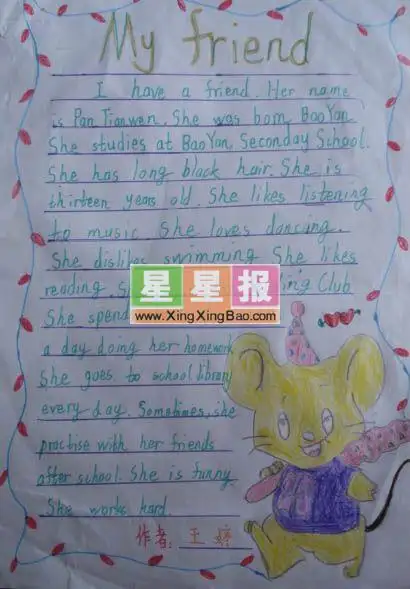 My friend
I have a friend. Her name
is Pan Tianwen. She was born BaoYan
She studies at BaoYan Seconday School.
She has long black hair. She is
thirteen years old. She likes listening
to music. She loves dancing.
She dislikes swimming She likes
reading. Club
星星报
She spend
www.XingXingBao.com
a day doing her homework
She goes to school library
every day. Sometimes, she
practise with her friends
after school. She is funny.
She works hard.
作者: 王婷